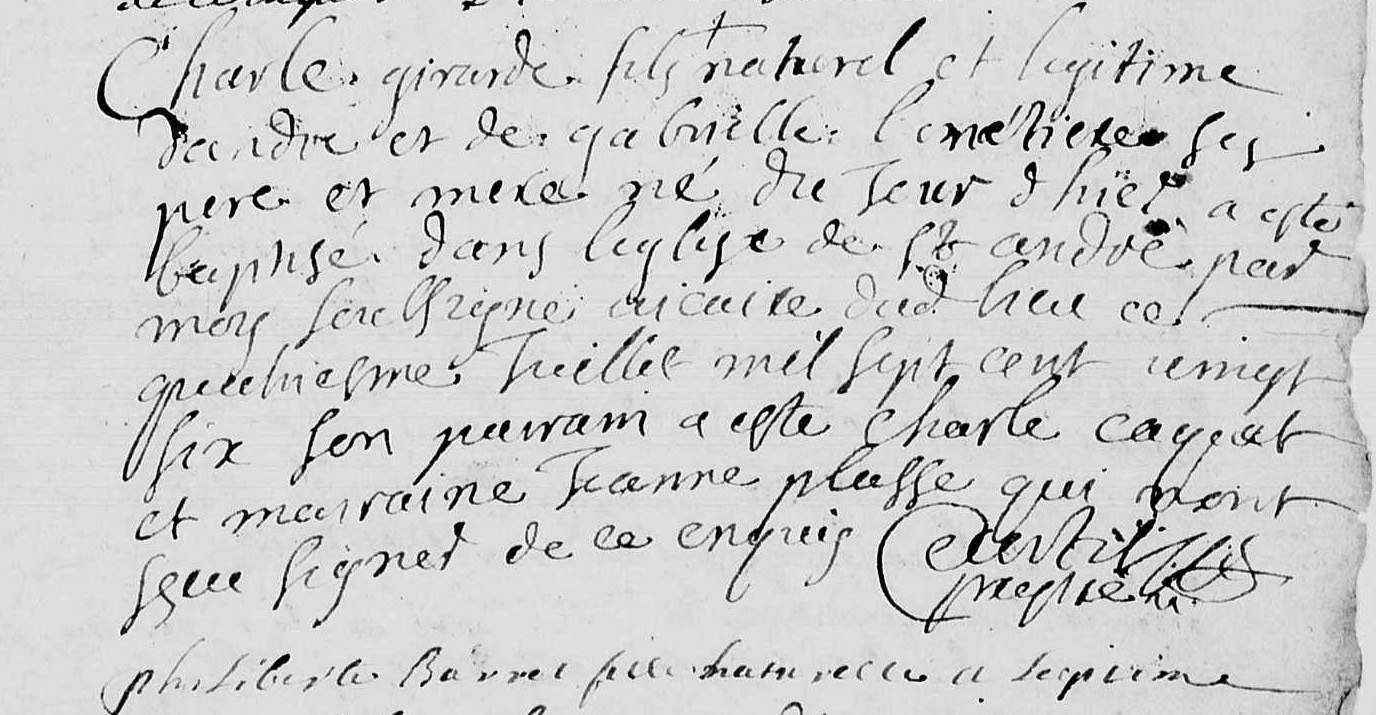 Charle girarde fils naturel et legitime
dandre et de gabrielle lemétiere ses
pere et mere né du Jour dhier a esté
baptisé dans leglise de st andré par
moy soubsigné vicaire dud lieu ce
quathiesme Juillet mil sept cent vingt
six son parrain a esté charle caquat
et marraine Jeanne plasse qui nont
sceu signer de ce enquis
Philiberte Barret fille naturelle et legitime